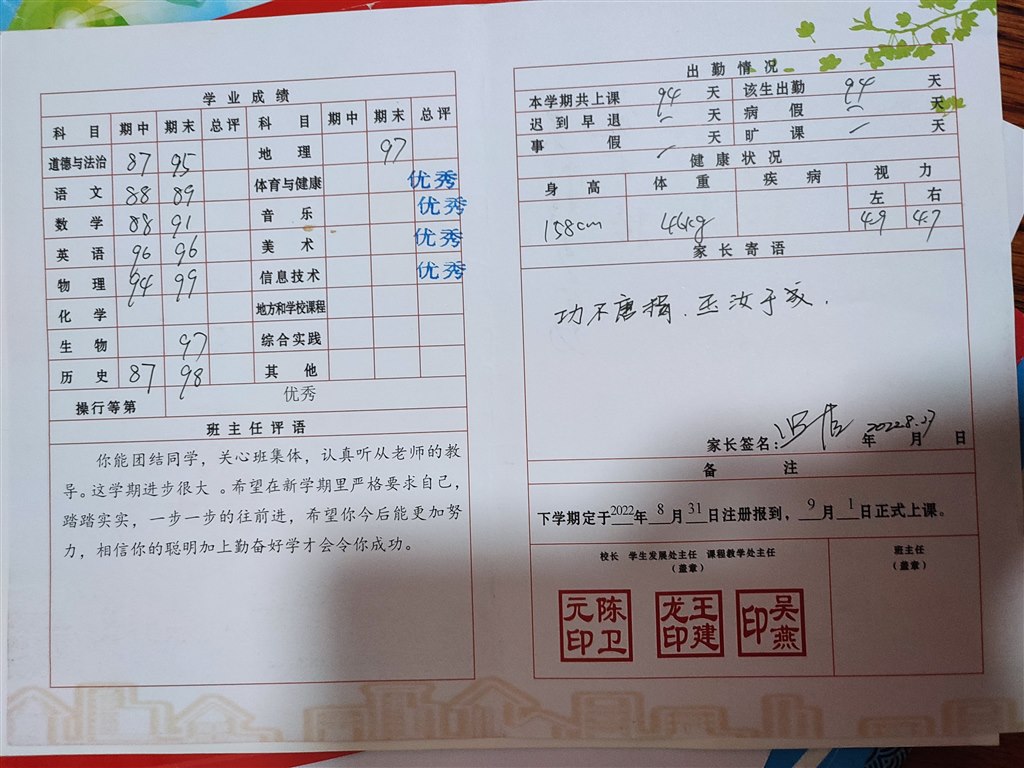 学业成绩
科目 期中 期末 总评 科目 期中 期末 总评
道德与法治 87 95 地理 97
语文 88 89 体育与健康 优秀
数学 88 91 音乐 优秀
英语 96 96 美术 优秀
物理 94 99 信息技术 优秀
化学 地方和学校课程
生物 97 综合实践
历史 87 98 其他
操行等第 优秀
班主任评语
你能团结同学，关心班集体，认真听从老师的教
导。这学期进步很大 。希望在新学期里严格要求自己，
踏踏实实，一步一步的往前进，希望你今后能更加努
力，相信你的聪明加上勤奋好学才会令你成功。
出勤情况
本学期共上课 94 天 该生出勤 94 天
迟到早退 天 病假 天
事假 天 旷课 天
健康状况
身高 体重 疾病 视力
左 右
158cm 44kg 4.9 4.7
家长寄语
功不唐捐.玉汝于成.
家长签名： 2022.8.27 年 月 日
备注
下学期定于2022年8月31日注册报到，9月1日正式上课。
校长 学生发展处主任 课程教学处主任 班主任
（盖章） （盖章）
陈卫元印 王建龙印 吴燕印